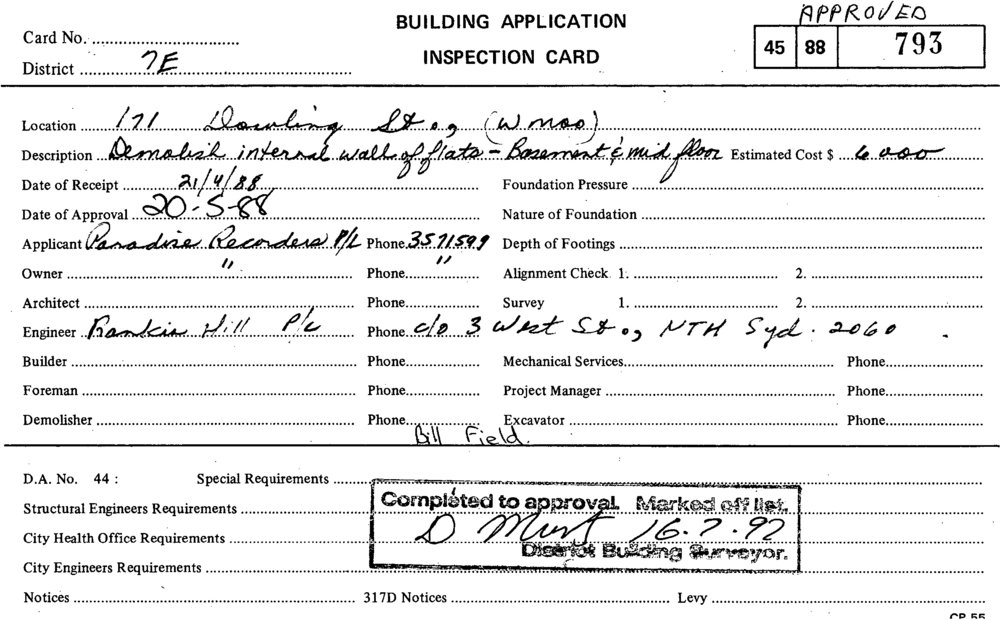 APPROVED
BUILDING APPLICATION
Card No.
45 88 793
INSPECTION CARD
District 7E
Location 171 Dowling St., (W'moo)
Description Demolish internal wall of flats - Basement & mid floor Estimated Cost $ 6000
Date of Receipt 21/4/88 Foundation Pressure
Date of Approval 20-5-88 Nature of Foundation
Applicant Paradise Recorders P/L Phone 3571599 Depth of Footings
Owner " Phone " Alignment Check 1. 2.
Architect Phone Survey 1. 2.
Engineer Rankin Hill P/L Phone c/o 3 West St., NTH Syd. 2060
Builder Phone Mechanical Services Phone
Foreman Phone Project Manager Phone
Demolisher Phone Excavator Phone
Bill Field.
D.A. No. 44 : Special Requirements
Completed to approval. Marked off list.
Structural Engineers Requirements
D 16.7.92
City Health Office Requirements
District Building Surveyor.
City Engineers Requirements
Notices 317D Notices Levy
CP 55